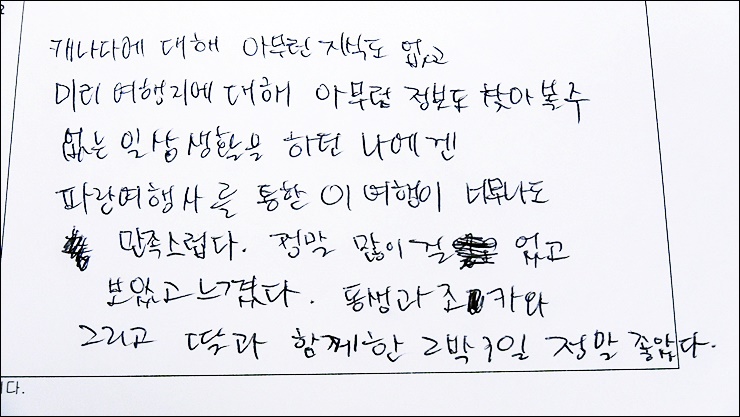 캐나다에 대해 아무런 지식도 없고
미리 여행지에 대해 아무럼 정보도 찾아볼주
없는 일상생활을 하던 나에겐
파란여행사를 통한 이 여행이 너무나도
만족스럽다. 정말 많이 걸 었고
보았고 느겼다. 동생과 조 카와
그리고 딸과 함께한 2박3일 정말 좋았다.
다.